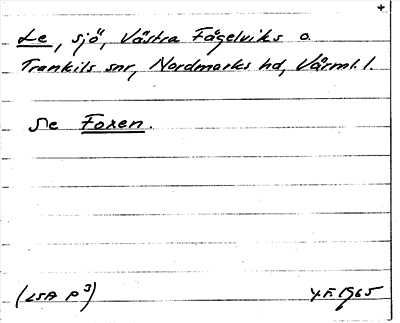 +
Le, sjö, Västra Fågelviks o.
Trankils snr, Nordmarks hd, Värml. l.
Se Foxen.
(LSA P³)
Y.F. 1965